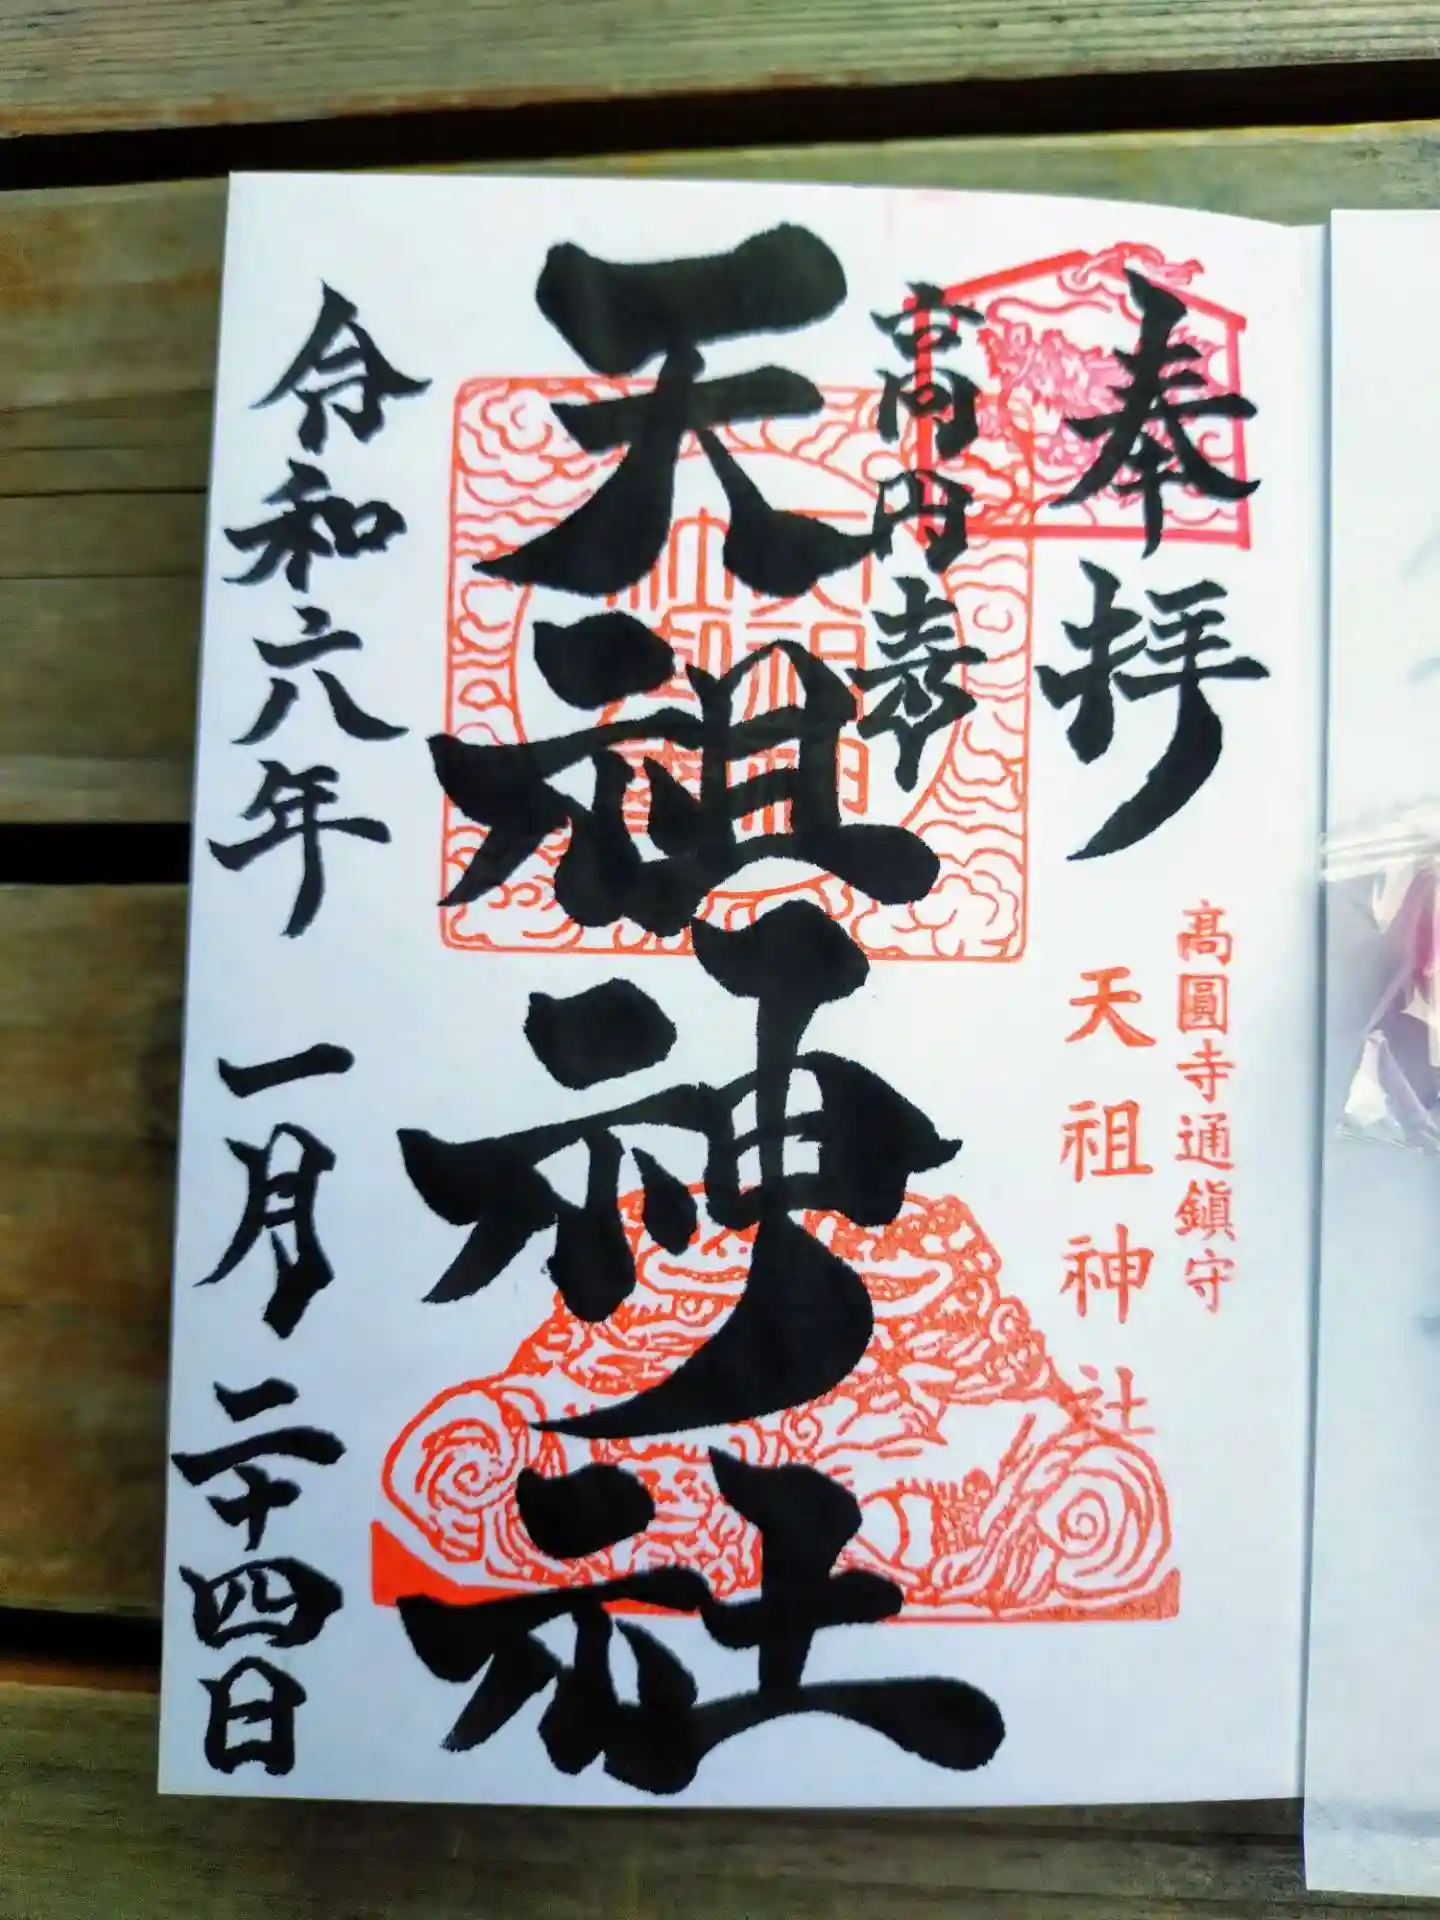 奉拝
高円寺
高圓寺通鎮守
天祖神社
天祖神社
令和六年 一月 二十四日